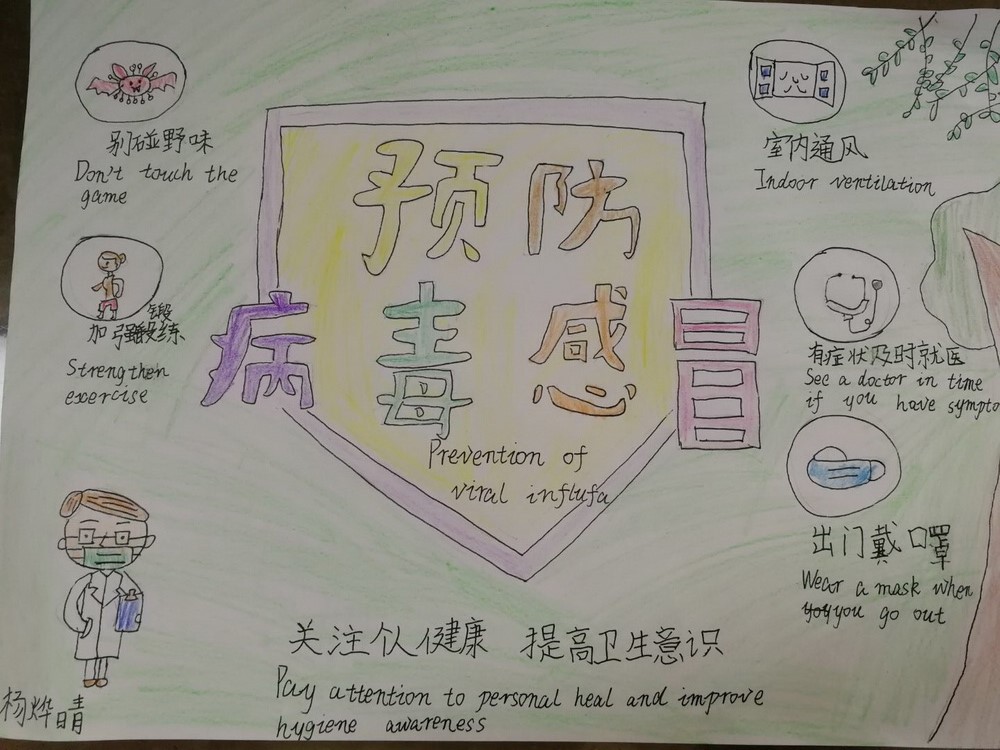 别碰野味
Don't touch the
game
加强锻练
Strengthen
exercise
预防
病毒感冒
Prevention of
viral influfa
室内通风
Indoor ventilation
有症状及时就医
See a doctor in time
if you have sympto
出门戴口罩
Wear a mask when
you go out
关注个人健康 提高卫生意识
Pay attention to personal heal and improve
hygiene awareness
杨烨晴